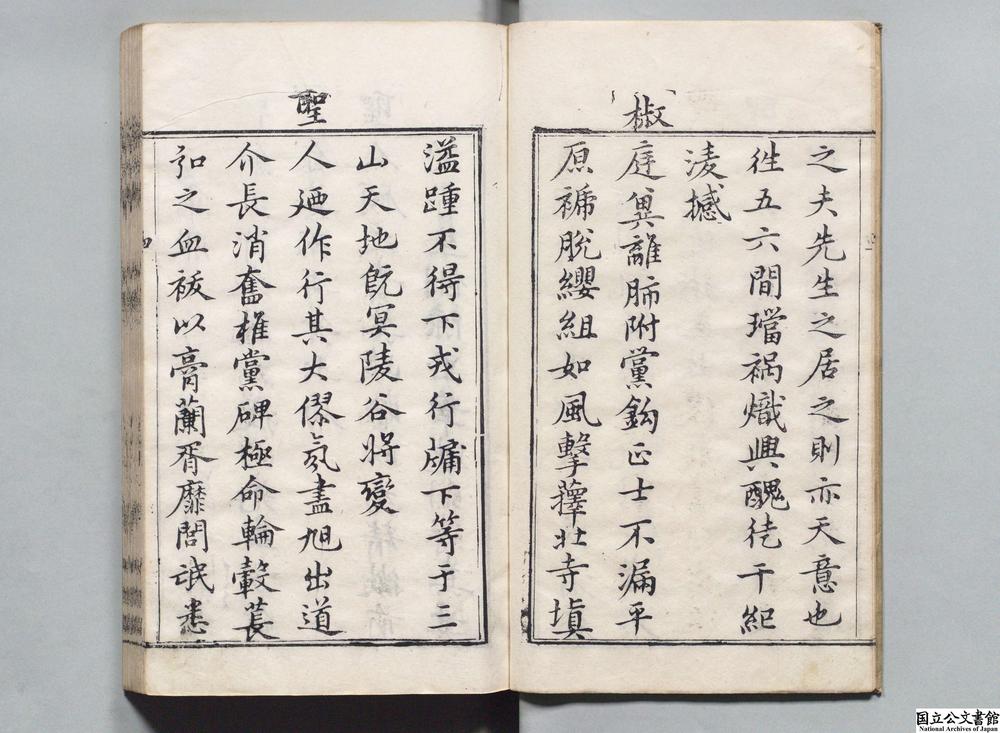 之夫先生之居之則亦天意也
徃五六間璫禍熾興醜徒干紀
淩撼
椒
庭巽離肺附黨鈎正士不漏平
原褫脫纓組如風擊蘀北寺塡
溢踵不得下戎行牖下等于三
山天地旣冥陵谷將變
聖
人廼作行其大僇氛盡旭出道
介長消奮椎黨碑極命輪轂萇
弘之血祓以膏蘭胥靡閭氓悉
国立公文書館
National Archives of Japan